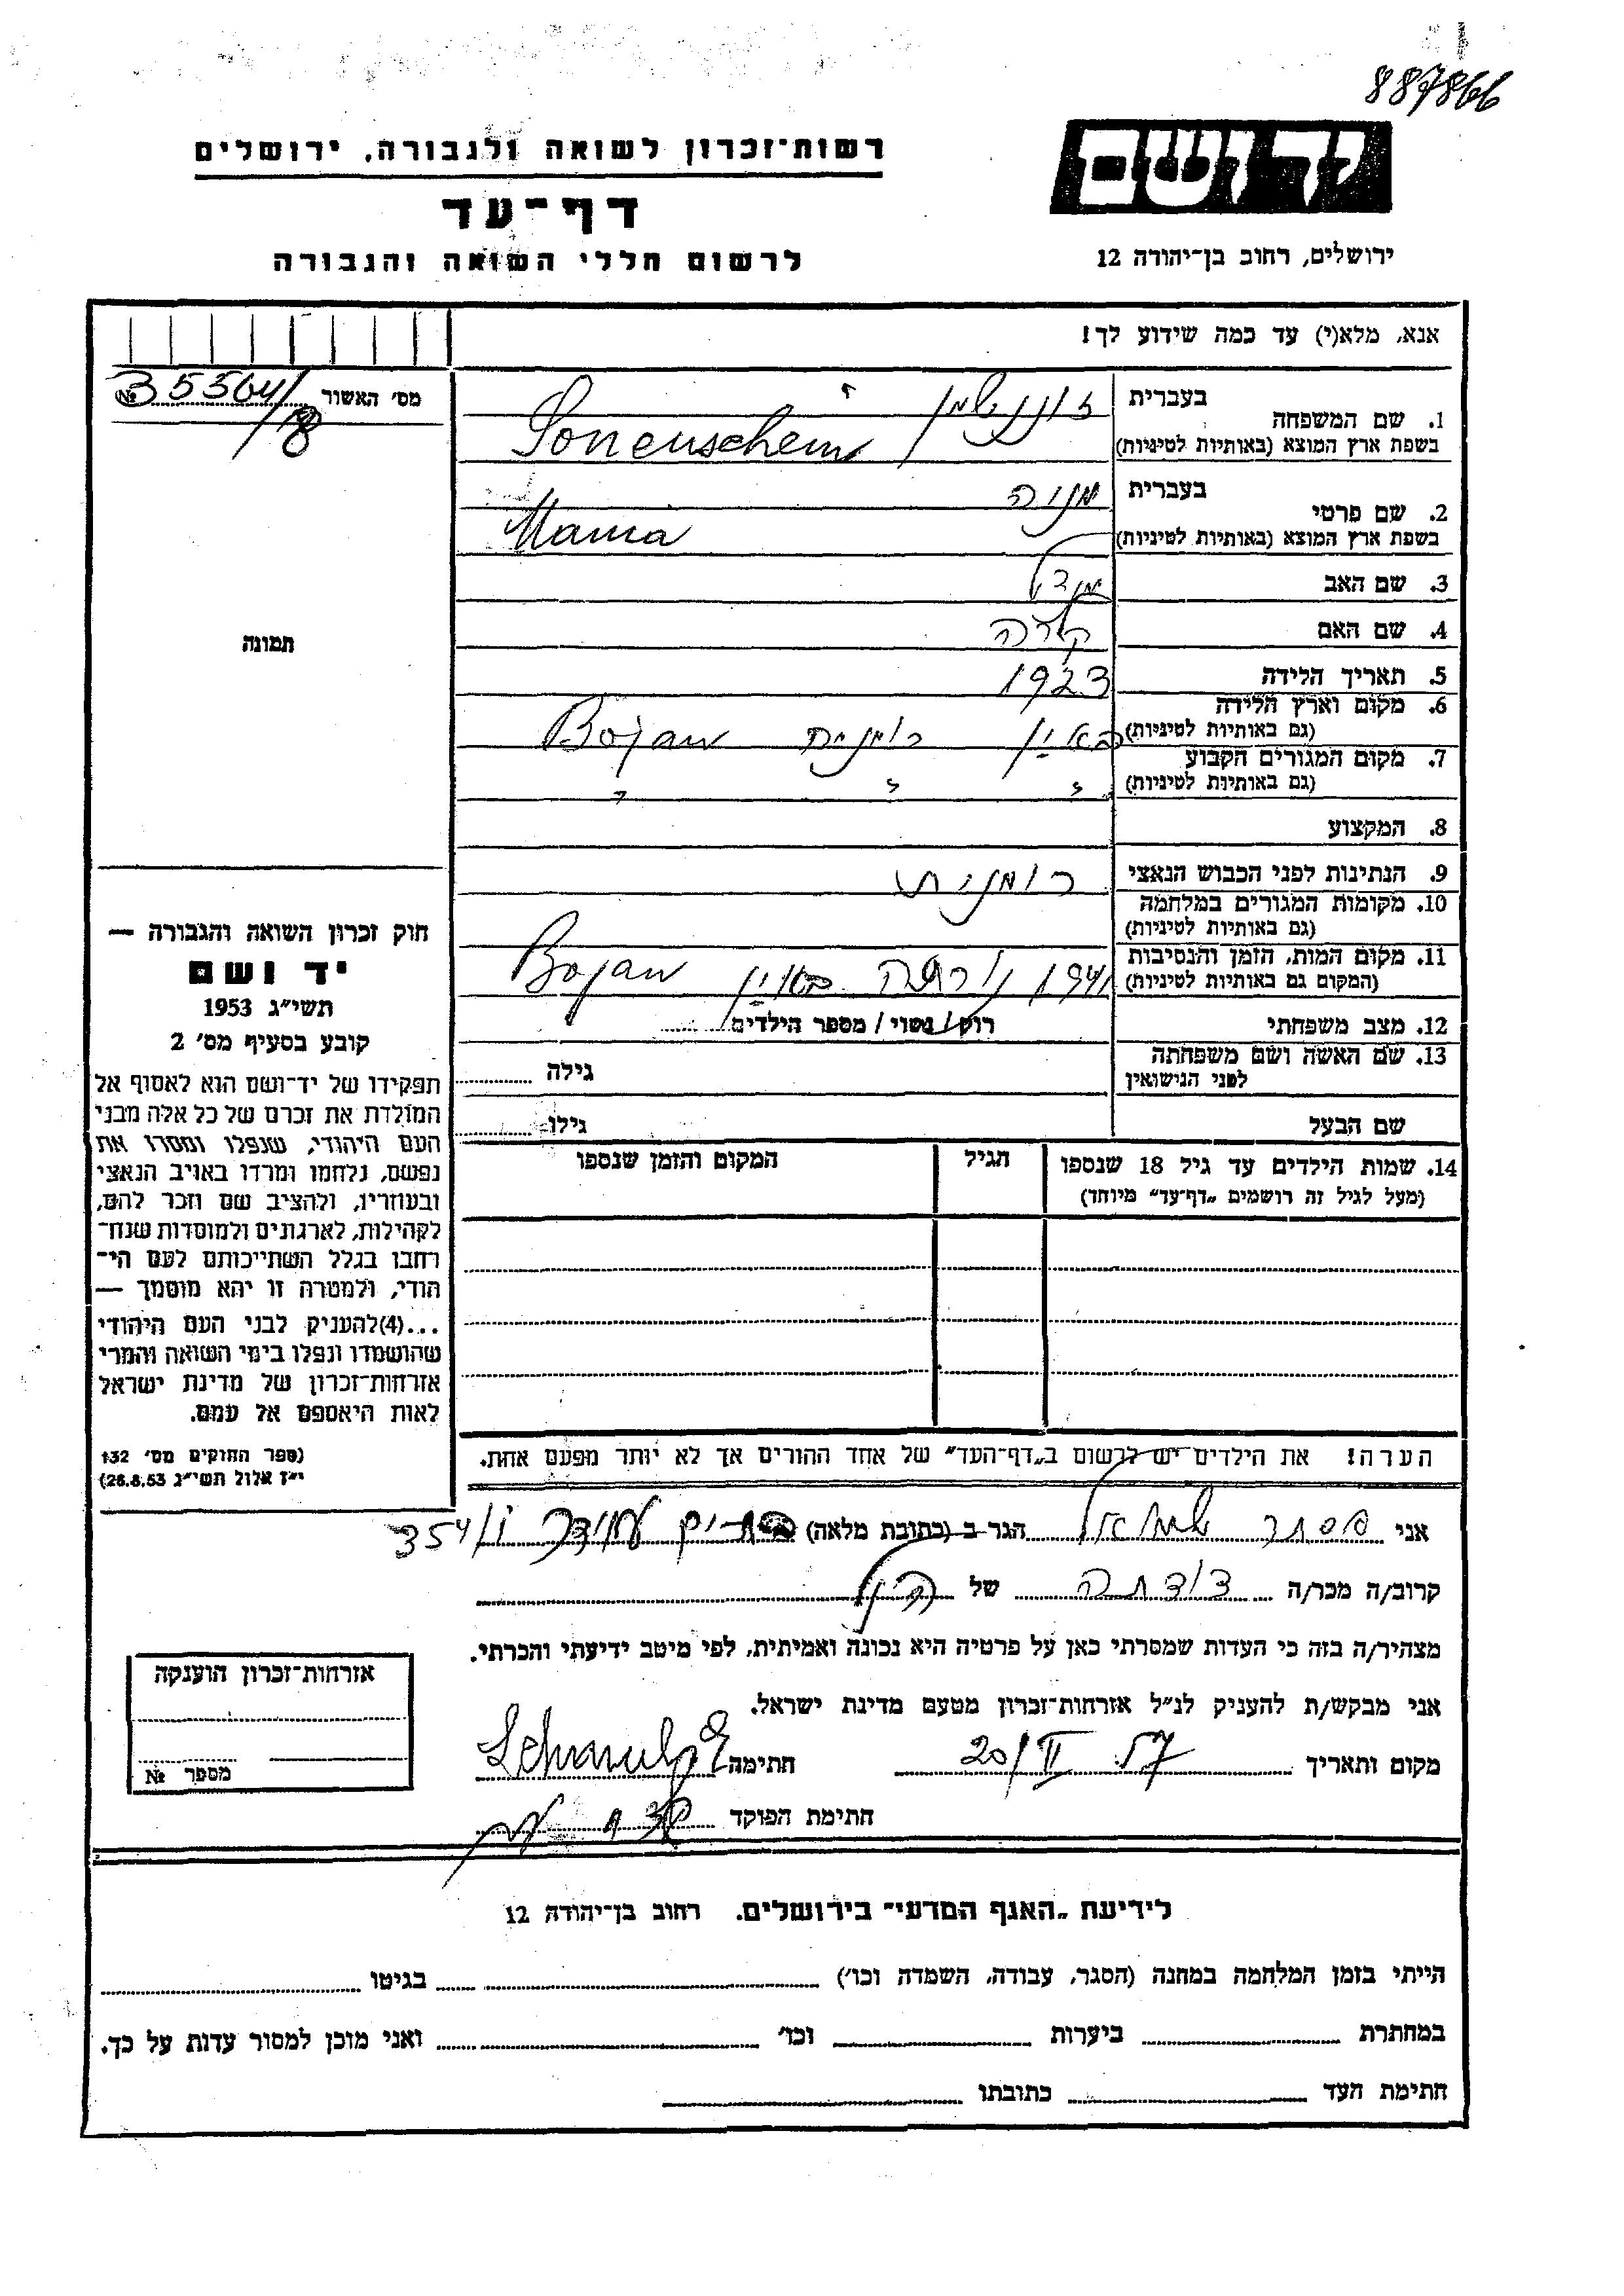 887866
יד ושם
רשות־זכרון לשואה ולגבורה, ירושלים
דף־עד
לרשום חללי השואה והגבורה
ירושלים, רחוב בן־יהודה 12
אנא, מלא(י) עד כמה שידוע לך!
מס׳ האשור № 35564/
/8
תמונה
1. שם המשפחה
בעברית
בשפת ארץ המוצא (באותיות לטיניות) Sonenschein
2. שם פרטי
בעברית מניה
בשפת ארץ המוצא (באותיות לטיניות) Mania
3. שם האב מנדל
4. שם האם קלרה
5. תאריך הלידה 1923
6. מקום וארץ הלידה
(גם באותיות לטיניות) באין רומניה Bojan
7. מקום המגורים הקבוע
(גם באותיות לטיניות) " " "
8. המקצוע
9. הנתינות לפני הכבוש הנאצי רומנית
10. מקומות המגורים במלחמה
(גם באותיות לטיניות)
11. מקום המות, הזמן והנסיבות
(המקום גם באותיות לטיניות) 1941 נורתה באין Bojan
12. מצב משפחתי רווק / נשוי / מספר הילדים
13. שם האשה ושם משפחתה
לפני הנישואין גילה
שם הבעל גילו
14. שמות הילדים עד גיל 18 שנספו הגיל המקום והזמן שנספו
(מעל לגיל זה רושמים „דף־עד״ מיוחד)
הערה! את הילדים יש לרשום ב„דף־העד״ של אחד ההורים אך לא יותר מפעם אחת.
חוק זכרון השואה והגבורה —
יד ושם
תשי״ג 1953
קובע בסעיף מס׳ 2
תפקידו של יד־ושם הוא לאסוף אל
המולדת את זכרם של כל אלה מבני
העם היהודי, שנפלו ומסרו את
נפשם, נלחמו ומרדו באויב הנאצי
ובעוזריו, ולהציב שם וזכר להם,
לקהילות, לארגונים ולמוסדות שנח־
רבו בגלל השתייכותם לעם הי־
הודי, ולמטרה זו יהא מוסמך —
...(4)להעניק לבני העם היהודי
שהושמדו ונפלו בימי השואה והמרי
אזרחות־זכרון של מדינת ישראל
לאות היאספם אל עמם.
(ספר החוקים מס׳ 132
י״ז אלול תשי״ג 28.8.53)
אני אסתר שמואל הגר ב (כתובת מלאה) 354/
קרוב/ה מכר/ה דודתה של הנ״ל
מצהיר/ה בזה כי העדות שמסרתי כאן על פרטיה היא נכונה ואמיתית, לפי מיטב ידיעתי והכרתי.
אני מבקש/ת להעניק לנ״ל אזרחות־זכרון מטעם מדינת ישראל.
מקום ותאריך 20/II 57 חתימה
חתימת הפוקד
אזרחות־זכרון הוענקה
מספר №
לידיעת „האגף המדעי״ בירושלים. רחוב בן־יהודה 12
הייתי בזמן המלחמה במחנה (הסגר, עבודה, השמדה וכו׳) בגיטו
במחתרת ביערות וכו׳ ואני מוכן למסור עדות על כך.
חתימת העד כתובתו